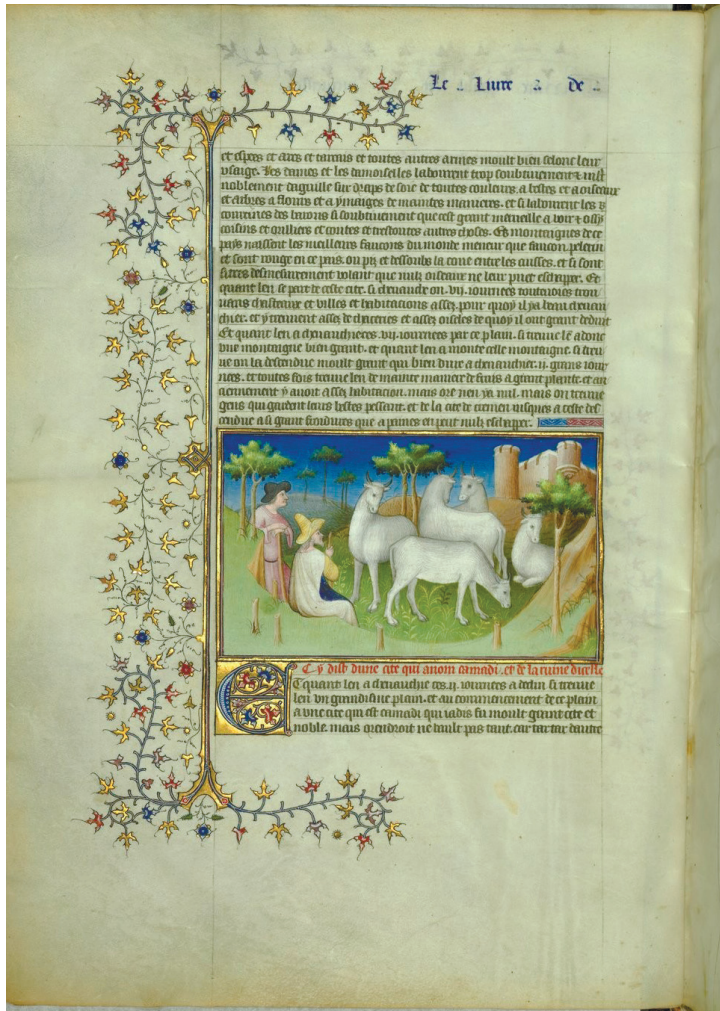 Le Liure de
et espees et arcs et tarcais et toutes autres armes moult bien selonc leur
vsaige. Les dames et les damoiselles labourent trop soubtiuement et mlt
noblement daguille sur draps de soie de toutes couleurs. a bestes et a oiseaux
et arbres a flours et a ymaiges de maintes manieres. et si labourent les
courtines des barons si soubtiuement que cest grant merueille a voir. et ossy
coissins et oreilliers et coutes et trestoutes autres choses. Es montaignes de ce
pays naissent les meilleurs faucons du monde meneur que faucon pelerin
et sont rouge en ce pais. ou piz et dessoubz la coue entre les cuisses. et si sont
si tres desmesureement volant que nulz oiseaux ne leur puet eschapper. Et
quant len se part de ceste cite. si cheuauche on .vij. iournees toutauoies trou
uans chasteaux et villes et habitacions assez. pour quoy il y a beau cheuau
chier. et y treuuent assez de chaceries et assez oiseles de quoy il ont grant deduit
Et quant len a cheuauchie ces .vij. iournees par ce plain. si treuue lē adonc
vne montaigne bien grant. et quant len a monte celle montaigne. si treu
ue on la descendue moult grant qui bien dure a cheuauchier .ij. grans iour
nees. et toutes fois treuue len de mainte maniere de fruis a grant plante. et an
ciennement y auoit assez habitacion. mais ore nen ya nul. mais on treuue
gens qui gardent leurs bestes pessant. et de la cite de cremen iusques a ceste des
cendue a si grant froidures que a paines en puet nulz eschapper.
Cy dist dune cite qui a nom camadi. et de la ruine dicelle
Et quant len a cheuauchie ces .ij. iournees a declin si treuue
len vn grandisme plain. et au commencement de ce plain
a vne cite qui est camadi qui iadis fu moult grant cite et
noble. mais orendroit ne vault pas tant. car tartar dautre